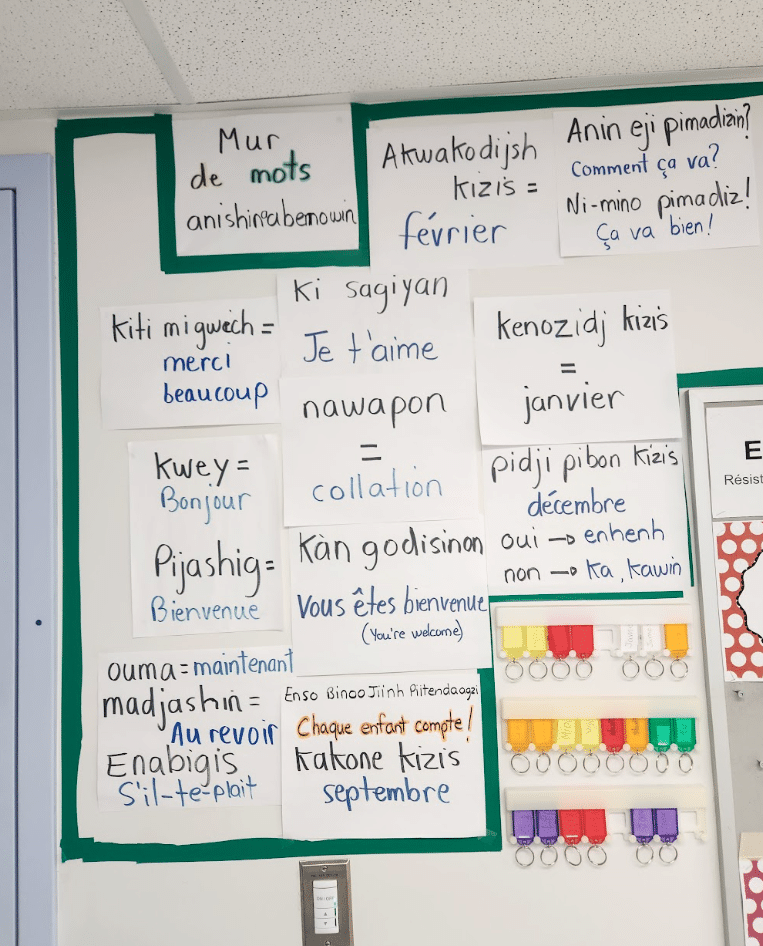 Mur
de mots
anishinabemowin
Akwakodijsh
kizis =
février
Anin eji pimadizin?
Comment ça va?
Ni-mino pimadiz!
Ça va bien!
Kiti migwech =
merci
beaucoup
Ki sagiyan
Je t'aime
kenozidj kizis
=
janvier
nawapon
=
collation
Kwey =
Bonjour
Pijashig =
Bienvenue
pidji pibon kizis
décembre
oui → enhenh
non → Ka, Kawin
Kàn godisinon
Vous êtes bienvenue
(You're welcome)
ouma = maintenant
madjashin =
Au revoir
Enabigis
S'il-te-plait
Enso Binoo Jiinh Piitendaagzi
Chaque enfant compte!
Kakone Kizis
septembre
E
Résist